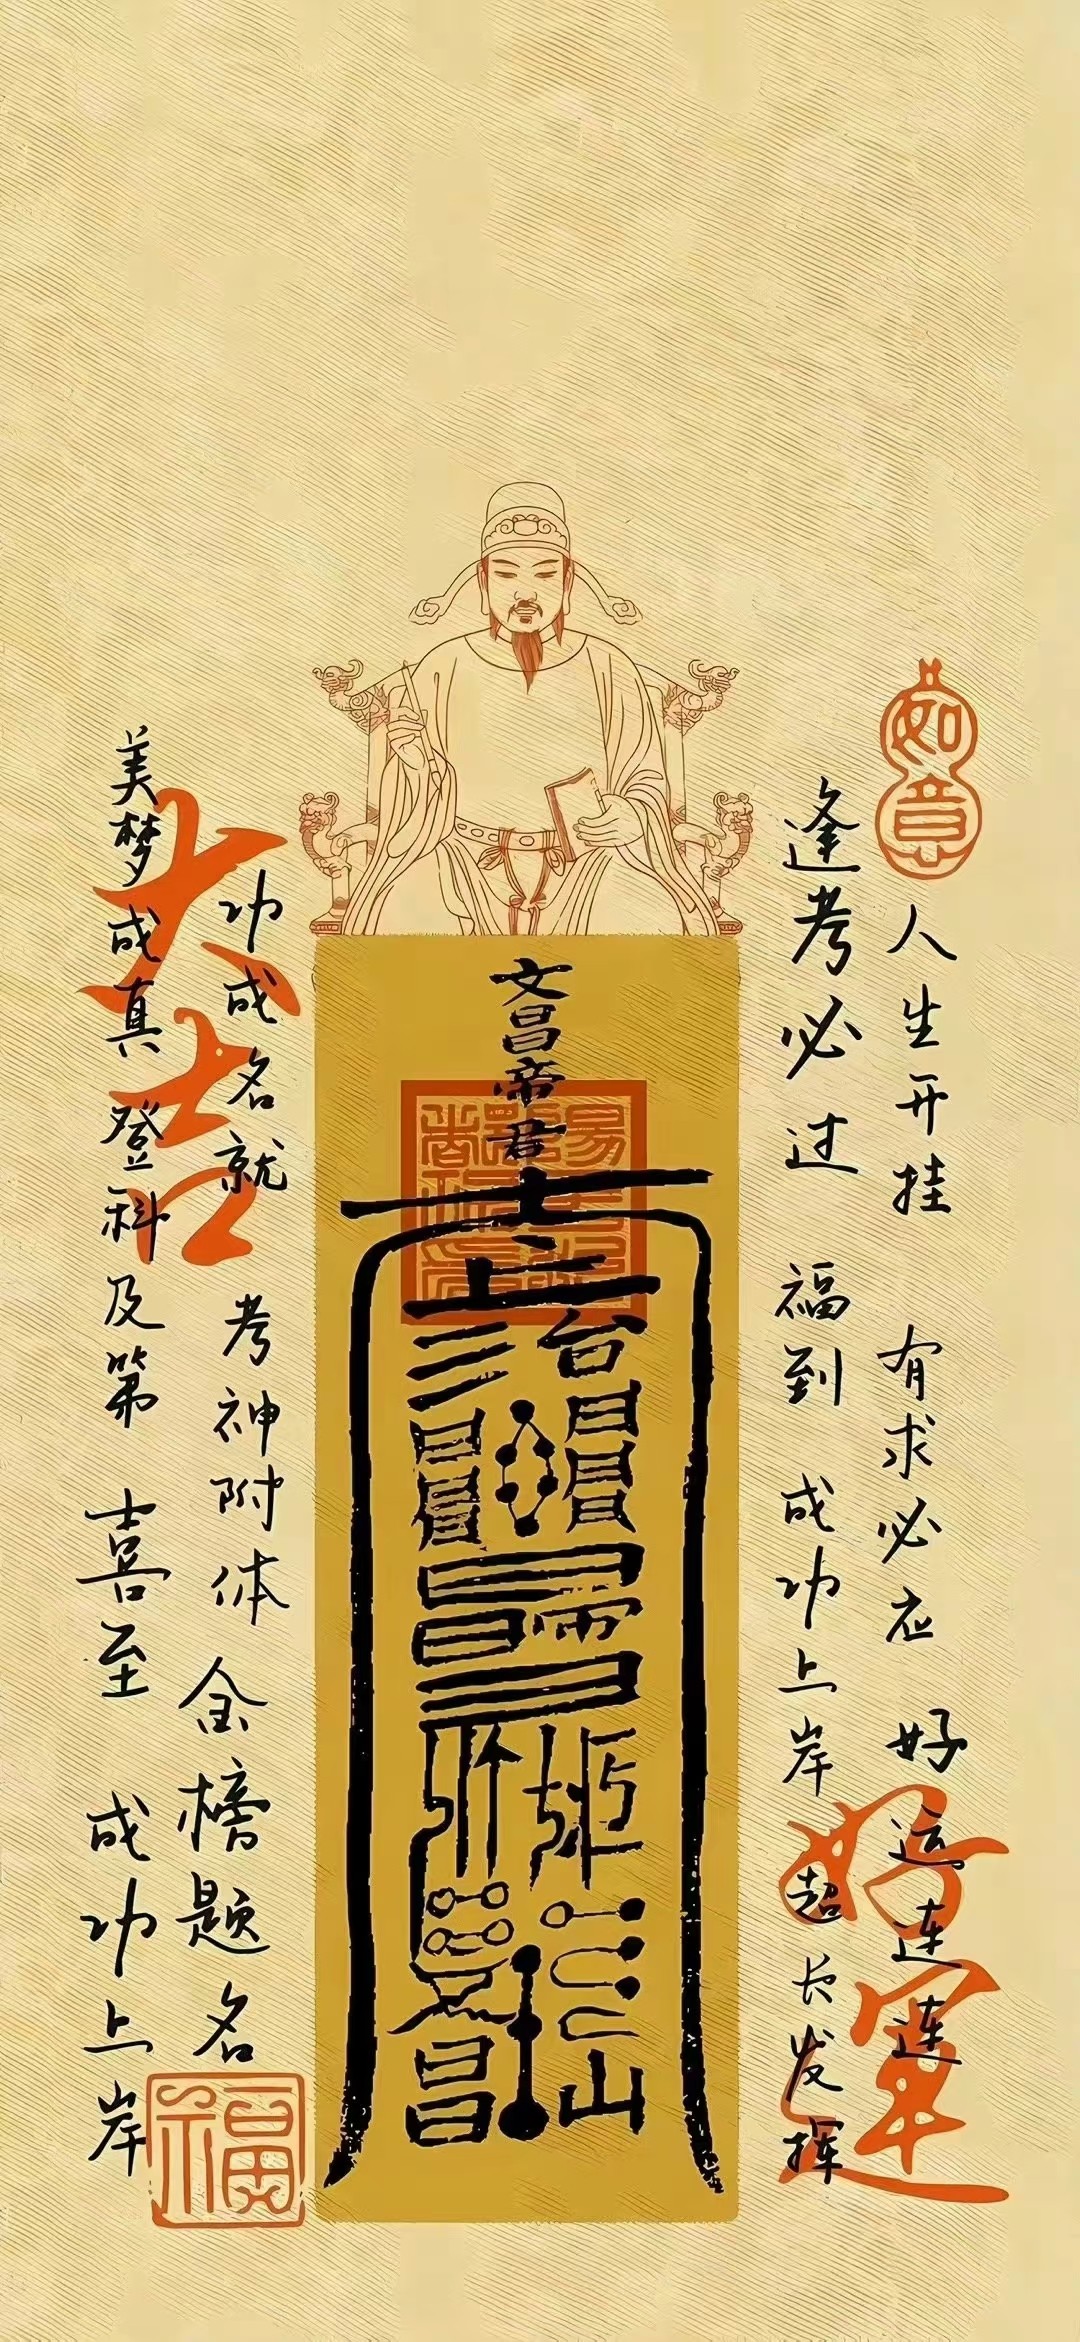 如意
人生开挂 有求必应 好运连连
逢考必过 福到 成功上岸 超长发挥
好运
文昌帝君
功成名就 考神附体 金榜题名
大吉
美梦成真 登科及第 喜至 成功上岸
福